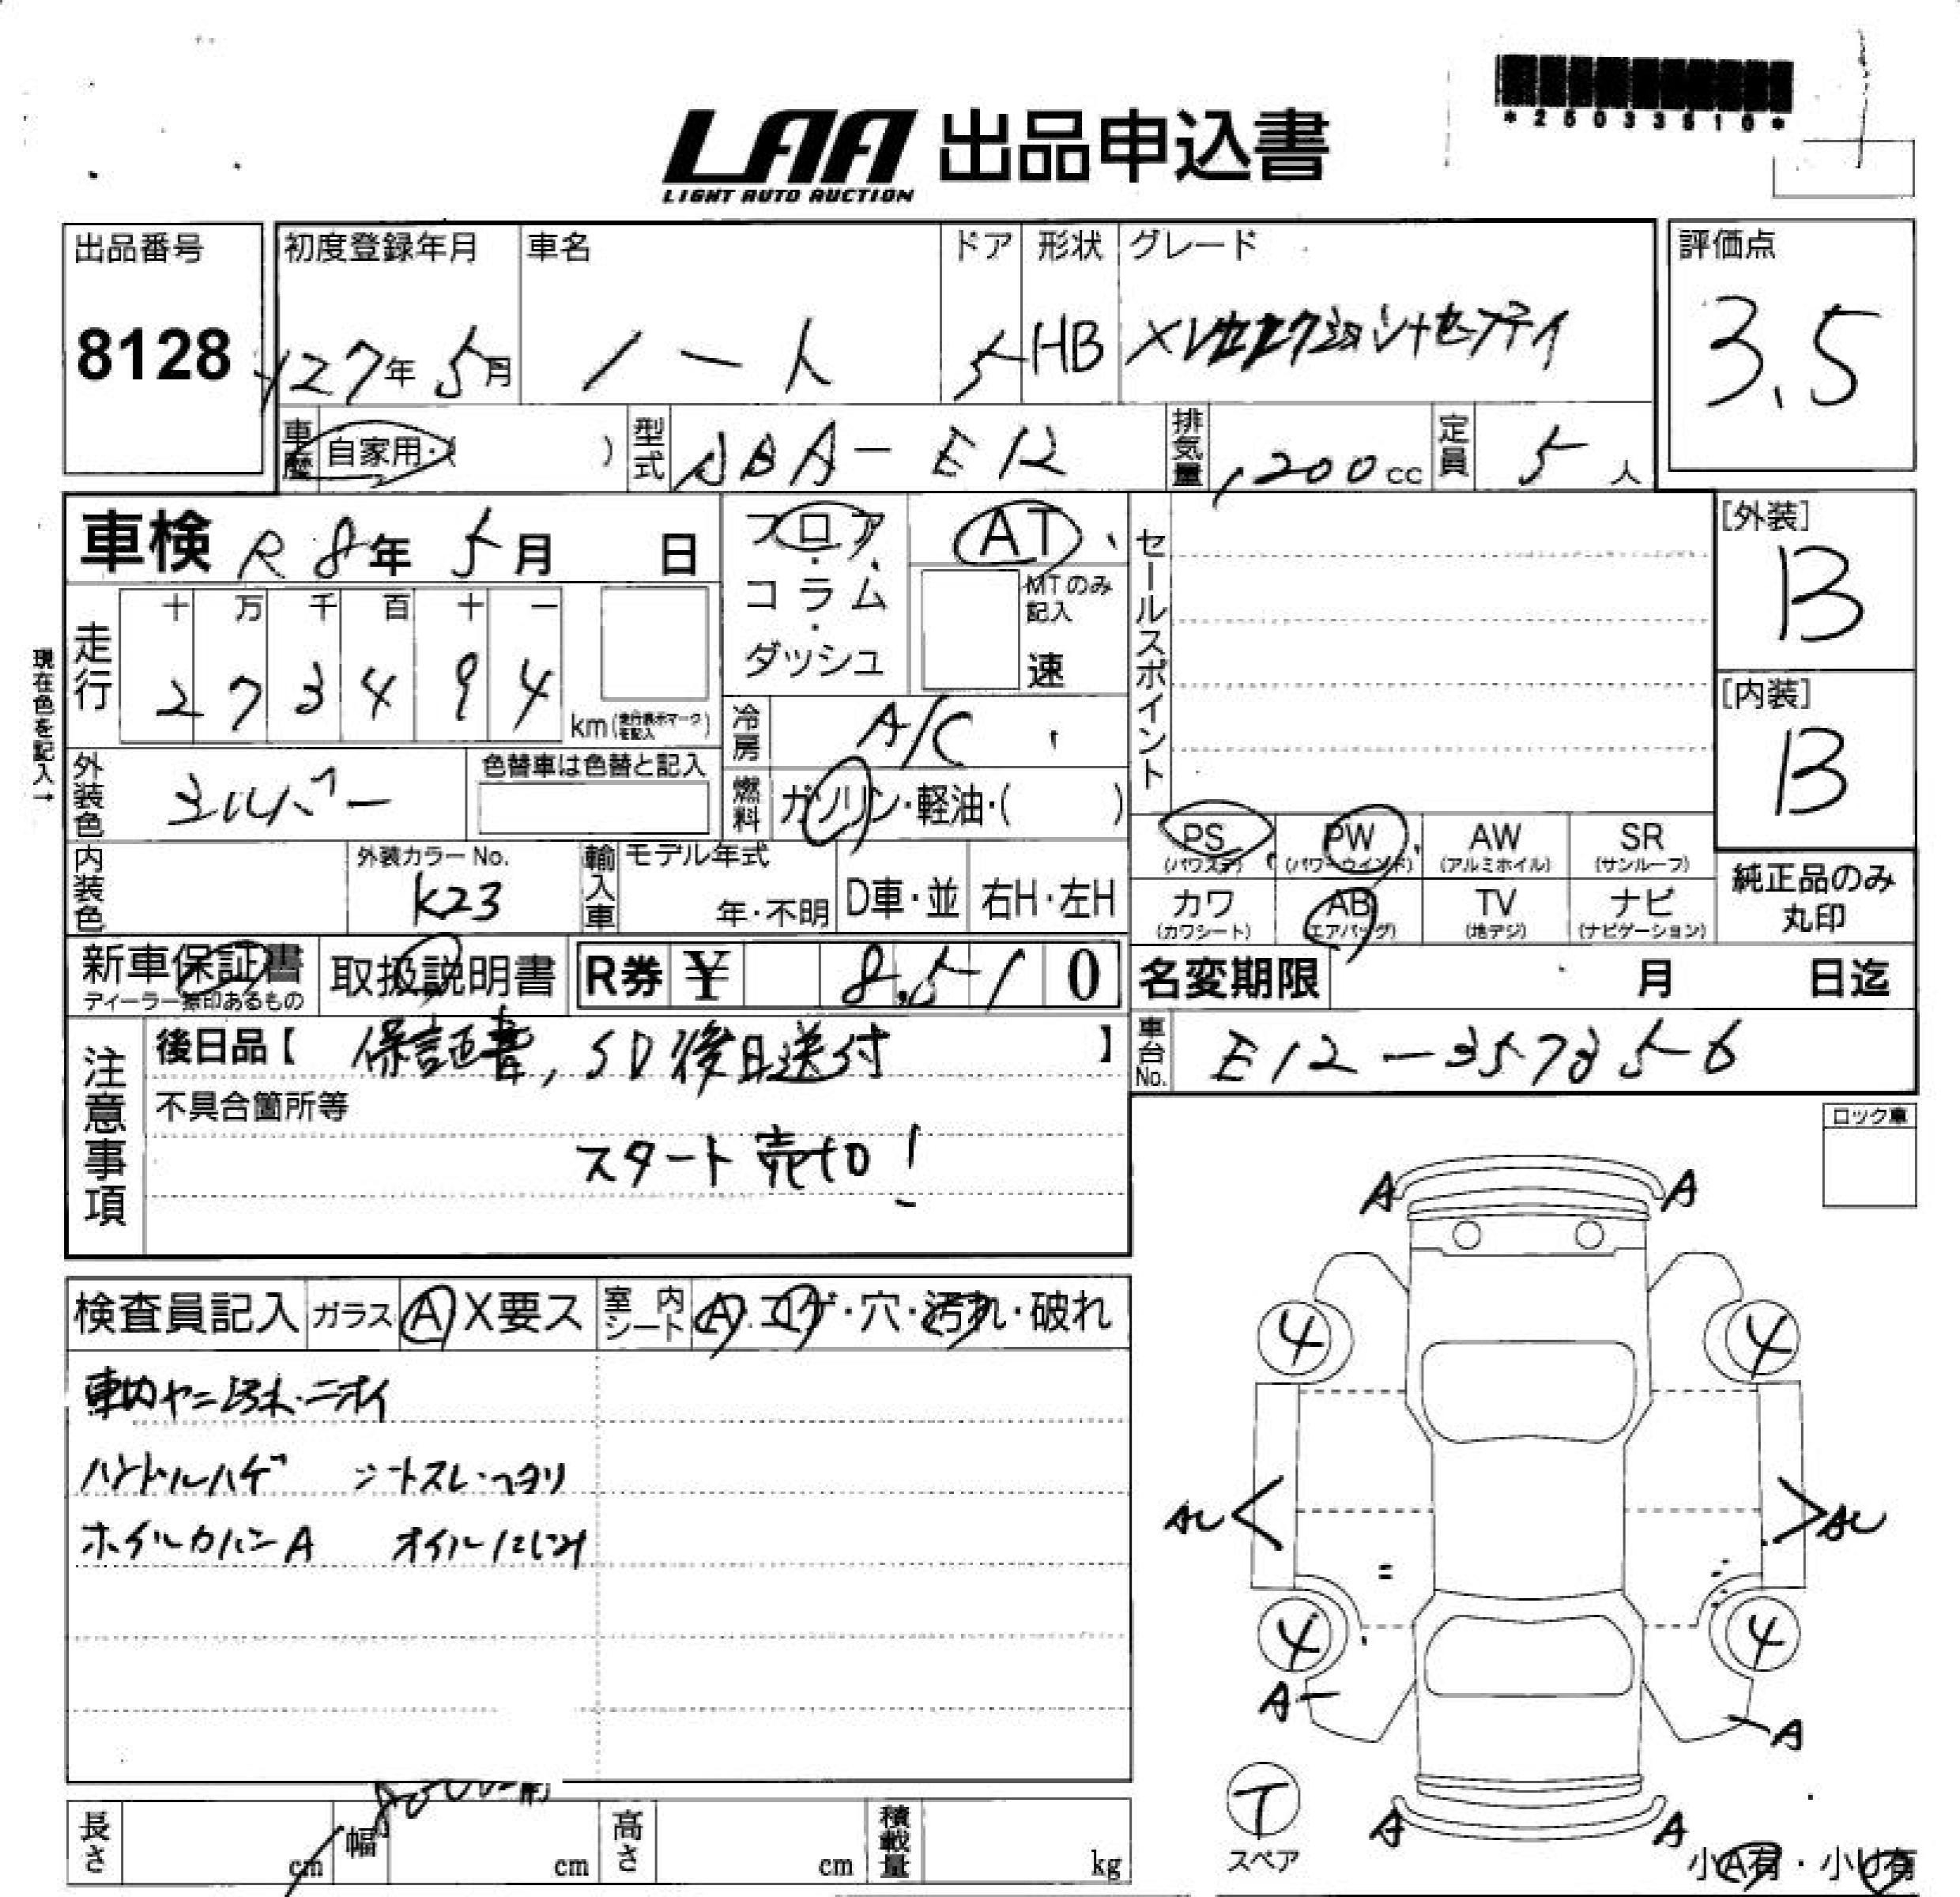 LAA 出品申込書
LIGHT AUTO AUCTION
*25033510*
出品番号 初度登録年月 車名 ドア 形状 グレード 評価点
8128 27年 5月 ノート 5 HB 3.5
車歴 自家用・( ) 型式 DBA-E12 排気量 1200cc 定員 5人
車検 R8年 5月 日
フロア・コラム・ダッシュ
AT
MTのみ記入
速
セールスポイント
[外装]
B
[内装]
B
現在色を記入→
走行 十 万 千 百 十 一
2 7 3 4 9 4 km(走行表示マークを記入)
冷房 A/C
外装色 シルバー 色替車は色替と記入
燃料 ガソリン・軽油・( )
PS(パワステ) PW(パワーウインド) AW(アルミホイル) SR(サンルーフ)
カワ(カワシート) AB(エアバッグ) TV(地デジ) ナビ(ナビゲーション)
純正品のみ丸印
内装色 外装カラーNo. K23 輸入車 モデル年式 年・不明 D車・並 右H・左H
新車保証書 取扱説明書 R券 ¥ 8,510
ディーラー無印あるもの
名変期限 月 日迄
注意事項
後日品【 保証書, SD後日送付 】
車台No. E12-357356
不具合箇所等
スタート売切!
ロック車
検査員記入 ガラス A X要ス 室内シート A・コゲ・穴・汚れ・破れ
車内ヤニ汚れ・ニオイ
ハンドルハゲ シートスレ・ヘタリ
ホイルカバーA オイルにじみ
A A
4 4
AU AU
4 4
A A
T
スペア
A A
小A有・小U有
長さ cm 幅 cm 高さ cm 積載量 kg